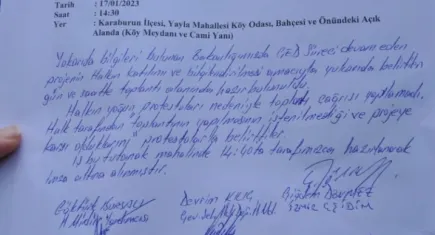 Tarih : 17/01/2023
Saat : 14:30
Yer : Karaburun İlçesi, Yayla Mahallesi Köy Odası, Bahçesi ve Önündeki Açık
Alanda (Köy Meydanı ve Cami Yanı)
Yukarıda bilgileri bulunan Bakanlığımızda ÇED Süreci devam eden
projenin Halkın katılımı ve bilgilendirilmesi amacıyla yukarıda belirtilen
gün ve saatte toplantı alanında hazır bulunuldu.
Halkın yoğun protestoları nedeniyle toplantı çağrısı yapılamadı.
Halk tarafından "toplantının yapılmasının istenilmediği ve projeye
karşı olduklarını" protestolarla belirttiler.
İş bu tutanak mahalinde 14:40ta tarafımızca hazırlanarak
imza altına alınmıştır.
Devrim